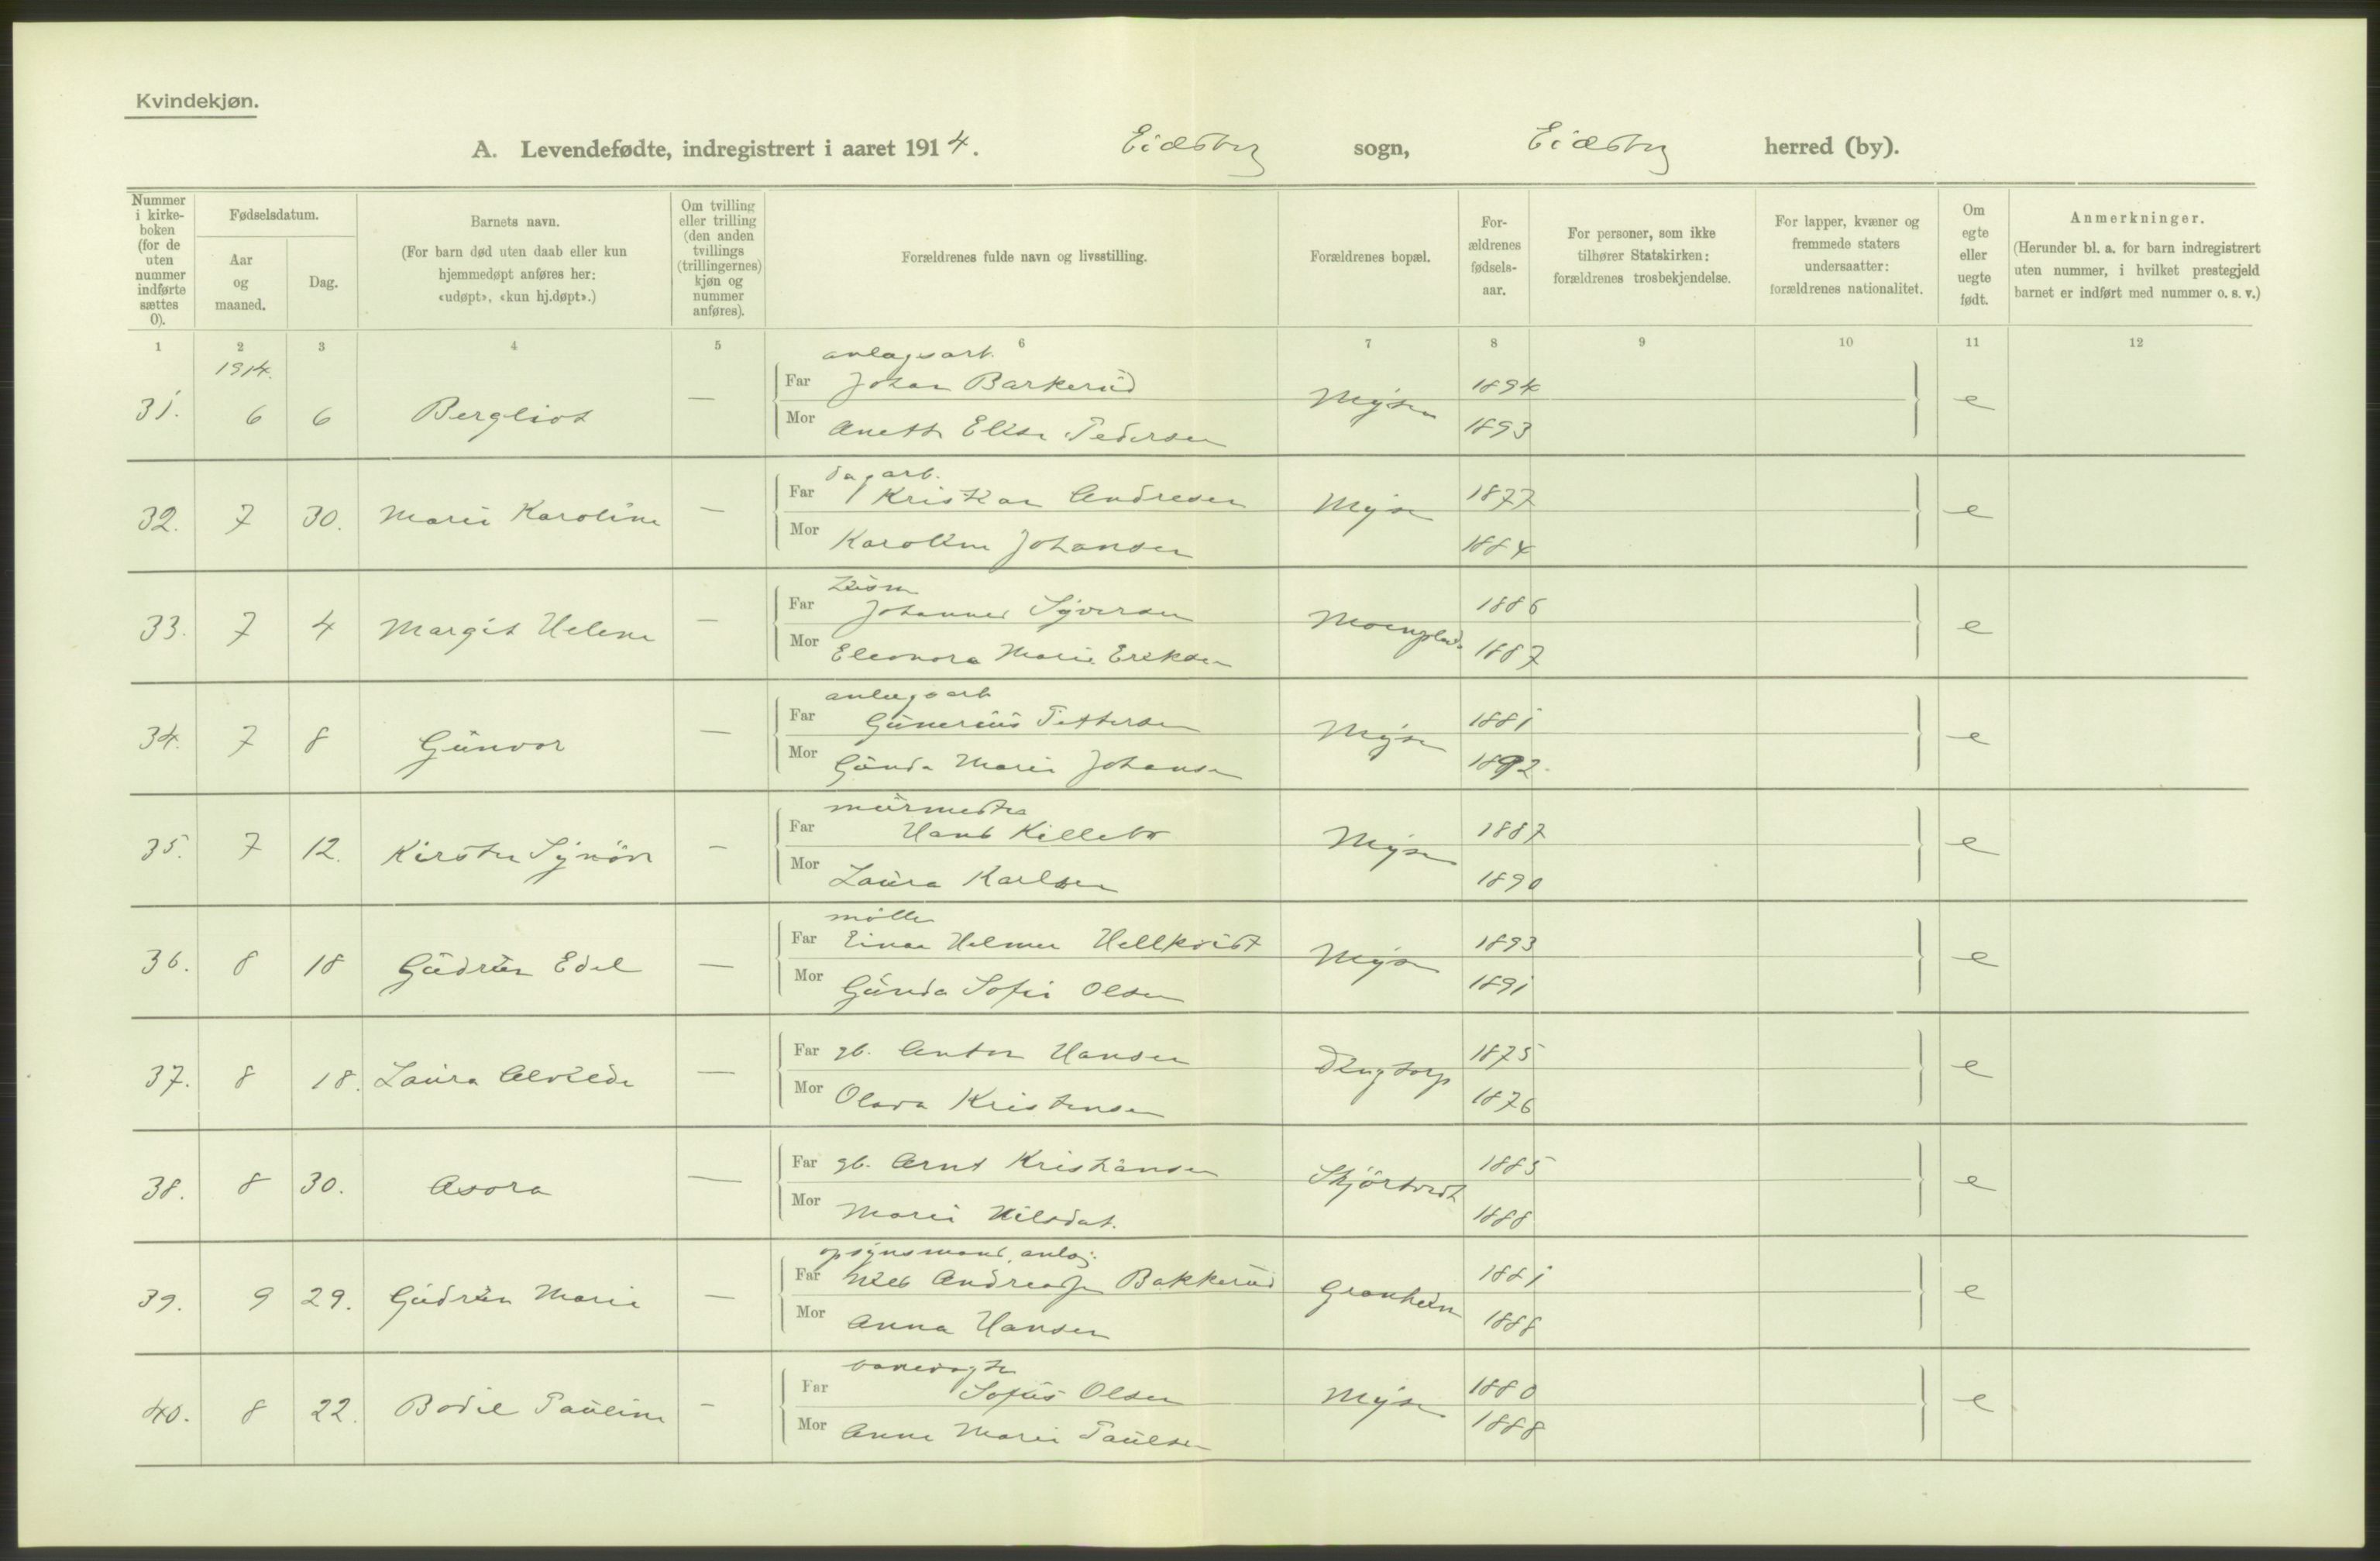 Kvindekjøn.
A. Levendefødte, indregistrert i aaret 1914. Eidsberg sogn, Eidsberg herred (by).
Nummer i kirkeboken (for de uten nummer indførte sættes 0).
Fødselsdatum.
Aar og maaned.
Dag.
Barnets navn.
(For barn død uten daab eller kun hjemmedøpt anføres her: «udøpt», «kun hj.døpt».)
Om tvilling eller trilling (den anden tvillings (trillingernes) kjøn og nummer anføres).
Forældrenes fulde navn og livsstilling.
Forældrenes bopæl.
For-ældrenes fødsels-aar.
For personer, som ikke tilhører Statskirken: forældrenes trosbekjendelse.
For lapper, kvæner og fremmede staters undersaatter: forældrenes nationalitet.
Om egte eller uegte født.
Anmerkninger.
(Herunder bl. a. for barn indregistrert uten nummer, i hvilket prestegjeld barnet er indført med nummer o. s. v.)
1 2 3 4 5 6 7 8 9 10 11 12
1914.
anlægsarb.
31. 6 6 Bergliot — Far Johan Barkerud Mysen 1894 e
Mor Anette Elise Pedersen 1893
dagarb.
32. 7 30. Marie Karoline — Far Kristian Andresen Mysen 1877 e
Mor Karoline Johansen 1884
33. 7 4 Margit Helene — Far Johannes Syversen 1886 e
Mor Eleonora Marie Eriksen 1887
anlægsarb
34. 7 8 Gunvor — Far Gunerius Pettersen Mysen 1881 e
Mor Gunda Marie Johansen 1892.
murmester
35. 7 12. Kirsten Synöve — Far Hans Killebo Mysen 1887 e
Mor Laura Karlsen 1890
møller
36. 8 18 Gudrun Edel — Far Einar Helmer Hellkvist Mysen 1893 e
Mor Gunda Sofie Olsen 1891
37. 8 18. Laura Alvilde — Far gb. Anton Hansen 1875 e
Mor Olava Kristensen 1876
38. 8 30. Asora — Far gb. Arnt Kristiansen Skjørtvedt 1885 e
Mor Marie Nilsdat. 1888
opsynsmand, anlæg.
39. 9 29. Gudrun Marie — Far Nils Bakkerud Granheim 1881 e
Mor Anna Hansen 1888
banevogter
40. 8 22. Bodil Pauline — Far Sofus Olsen Mysen 1880 e
Mor Anne Marie Paulsen 1888